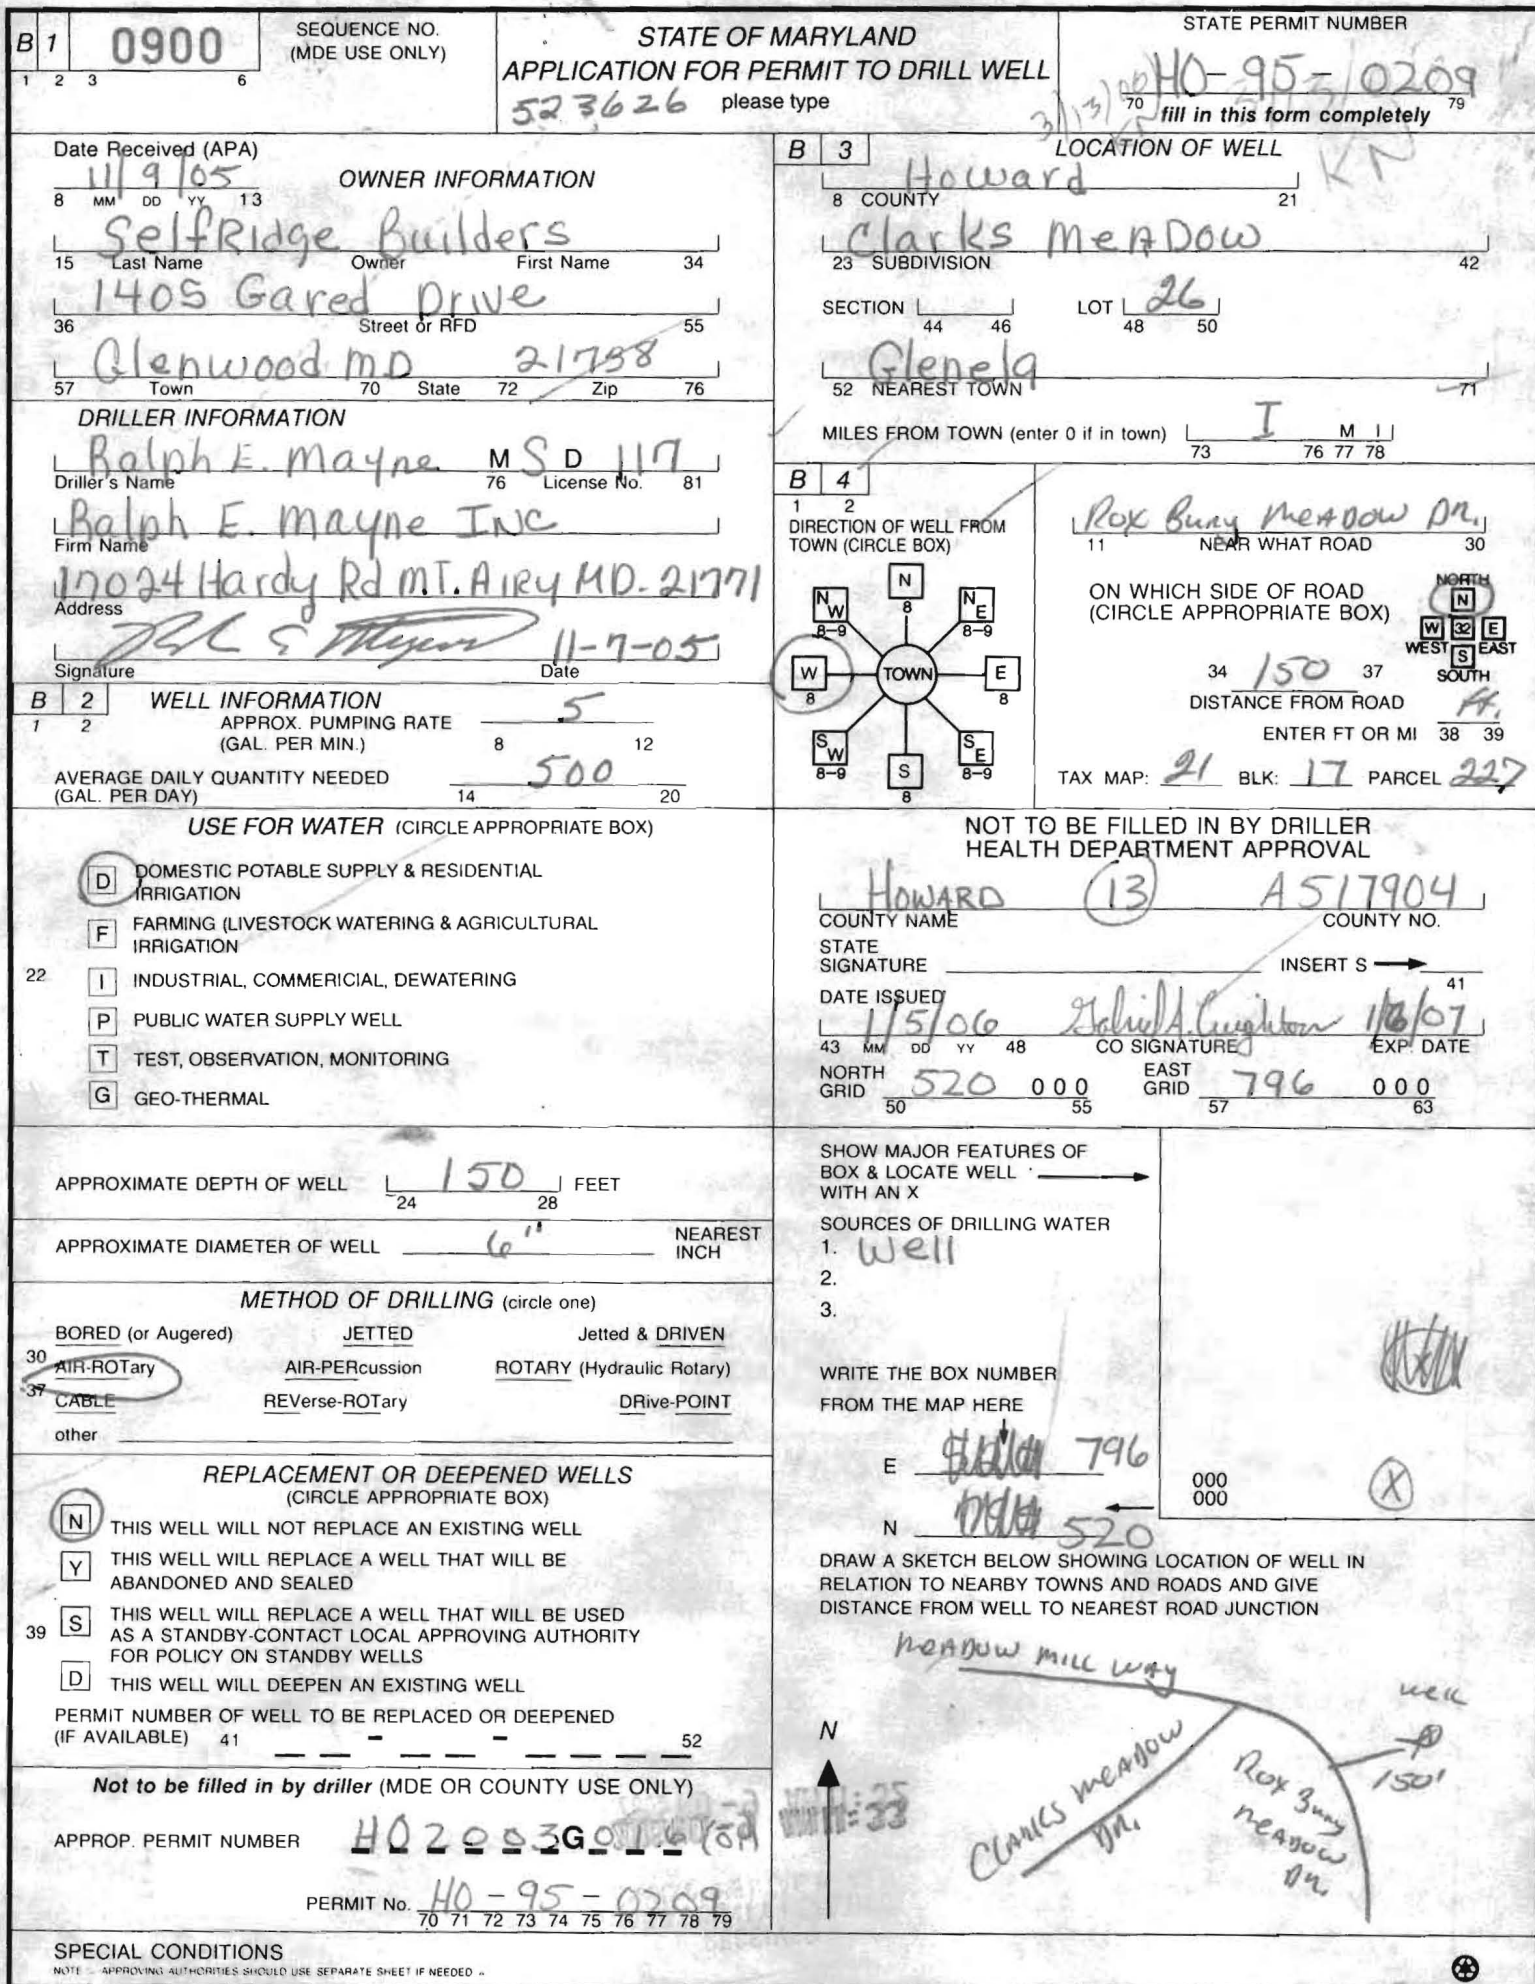 B 1 0900
1 2 3 6
SEQUENCE NO.
(MDE USE ONLY)
STATE OF MARYLAND
APPLICATION FOR PERMIT TO DRILL WELL
523626 please type
STATE PERMIT NUMBER
HO-95-0209
70 79
fill in this form completely
3/13/00
KN
Date Received (APA)
11/9/05
8 MM DD YY 13
OWNER INFORMATION
SelfRidge Builders
15 Last Name Owner First Name 34
1405 Gared Drive
36 Street or RFD 55
Glenwood MD 21738
57 Town 70 State 72 Zip 76
DRILLER INFORMATION
Ralph E. Mayne M S D 117
Driller's Name 76 License No. 81
Ralph E. Mayne INC
Firm Name
17024 Hardy Rd MT. AIRy MD. 21771
Address
11-7-05
Signature Date
B 2 WELL INFORMATION
1 2
APPROX. PUMPING RATE 5
(GAL. PER MIN.) 8 12
AVERAGE DAILY QUANTITY NEEDED 500
(GAL. PER DAY) 14 20
USE FOR WATER (CIRCLE APPROPRIATE BOX)
D DOMESTIC POTABLE SUPPLY & RESIDENTIAL
IRRIGATION
F FARMING (LIVESTOCK WATERING & AGRICULTURAL
IRRIGATION
22 I INDUSTRIAL, COMMERICIAL, DEWATERING
P PUBLIC WATER SUPPLY WELL
T TEST, OBSERVATION, MONITORING
G GEO-THERMAL
APPROXIMATE DEPTH OF WELL 150 FEET
24 28
APPROXIMATE DIAMETER OF WELL 6" NEAREST
INCH
METHOD OF DRILLING (circle one)
BORED (or Augered) JETTED Jetted & DRIVEN
30 AIR-ROTary AIR-PERcussion ROTARY (Hydraulic Rotary)
37 CABLE REVerse-ROTary DRive-POINT
other
REPLACEMENT OR DEEPENED WELLS
(CIRCLE APPROPRIATE BOX)
N THIS WELL WILL NOT REPLACE AN EXISTING WELL
Y THIS WELL WILL REPLACE A WELL THAT WILL BE
ABANDONED AND SEALED
39 S THIS WELL WILL REPLACE A WELL THAT WILL BE USED
AS A STANDBY-CONTACT LOCAL APPROVING AUTHORITY
FOR POLICY ON STANDBY WELLS
D THIS WELL WILL DEEPEN AN EXISTING WELL
PERMIT NUMBER OF WELL TO BE REPLACED OR DEEPENED
(IF AVAILABLE) 41 - - 52
Not to be filled in by driller (MDE OR COUNTY USE ONLY)
APPROP. PERMIT NUMBER HO2003G016
PERMIT No. HO-95-0209
70 71 72 73 74 75 76 77 78 79
SPECIAL CONDITIONS
NOTE - APPROVING AUTHORITIES SHOULD USE SEPARATE SHEET IF NEEDED
B 3 LOCATION OF WELL
Howard
8 COUNTY 21
Clarks MEADOW
23 SUBDIVISION 42
SECTION LOT 26
44 46 48 50
Glenelg
52 NEAREST TOWN 71
MILES FROM TOWN (enter 0 if in town) I M I
73 76 77 78
B 4
1 2
DIRECTION OF WELL FROM
TOWN (CIRCLE BOX)
N
8
NW
8-9
NE
8-9
W
8
TOWN
E
8
SW
8-9
S
8
SE
8-9
Rox Bury MEADOW DR.
11 NEAR WHAT ROAD 30
ON WHICH SIDE OF ROAD
(CIRCLE APPROPRIATE BOX)
NORTH
N
W 32 E
WEST S EAST
SOUTH
34 150 37
DISTANCE FROM ROAD ft.
ENTER FT OR MI 38 39
TAX MAP: 21 BLK: 17 PARCEL 227
NOT TO BE FILLED IN BY DRILLER
HEALTH DEPARTMENT APPROVAL
HOWARD 13 A517904
COUNTY NAME COUNTY NO.
STATE
SIGNATURE INSERT S
41
DATE ISSUED
1/5/06 Gabriel A. Creighton 1/6/07
43 MM DD YY 48 CO SIGNATURE EXP. DATE
NORTH
GRID 520 000
50 55
EAST
GRID 796 000
57 63
SHOW MAJOR FEATURES OF
BOX & LOCATE WELL
WITH AN X
SOURCES OF DRILLING WATER
1. Well
2.
3.
WRITE THE BOX NUMBER
FROM THE MAP HERE
E 796
N 520
000
000
X
DRAW A SKETCH BELOW SHOWING LOCATION OF WELL IN
RELATION TO NEARBY TOWNS AND ROADS AND GIVE
DISTANCE FROM WELL TO NEAREST ROAD JUNCTION
MEADOW MILL WAY
well
150'
N
CLARKS MEADOW
DR.
Rox Bury
MEADOW
DR.